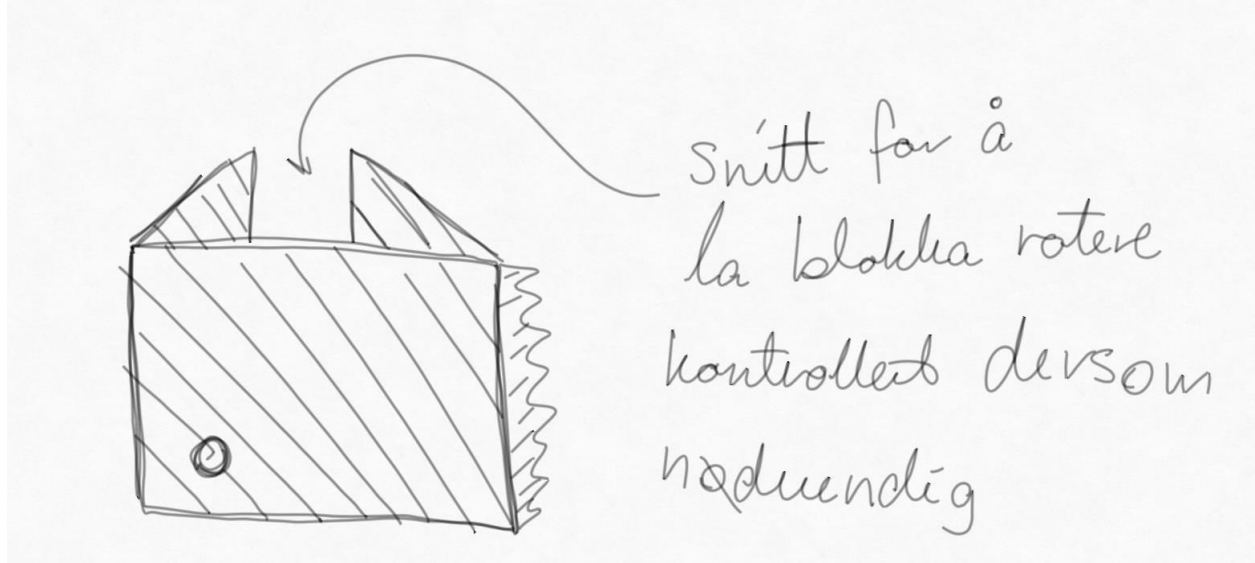 Snitt for å
la blokka rotere
kontrollert dersom
nødvendig